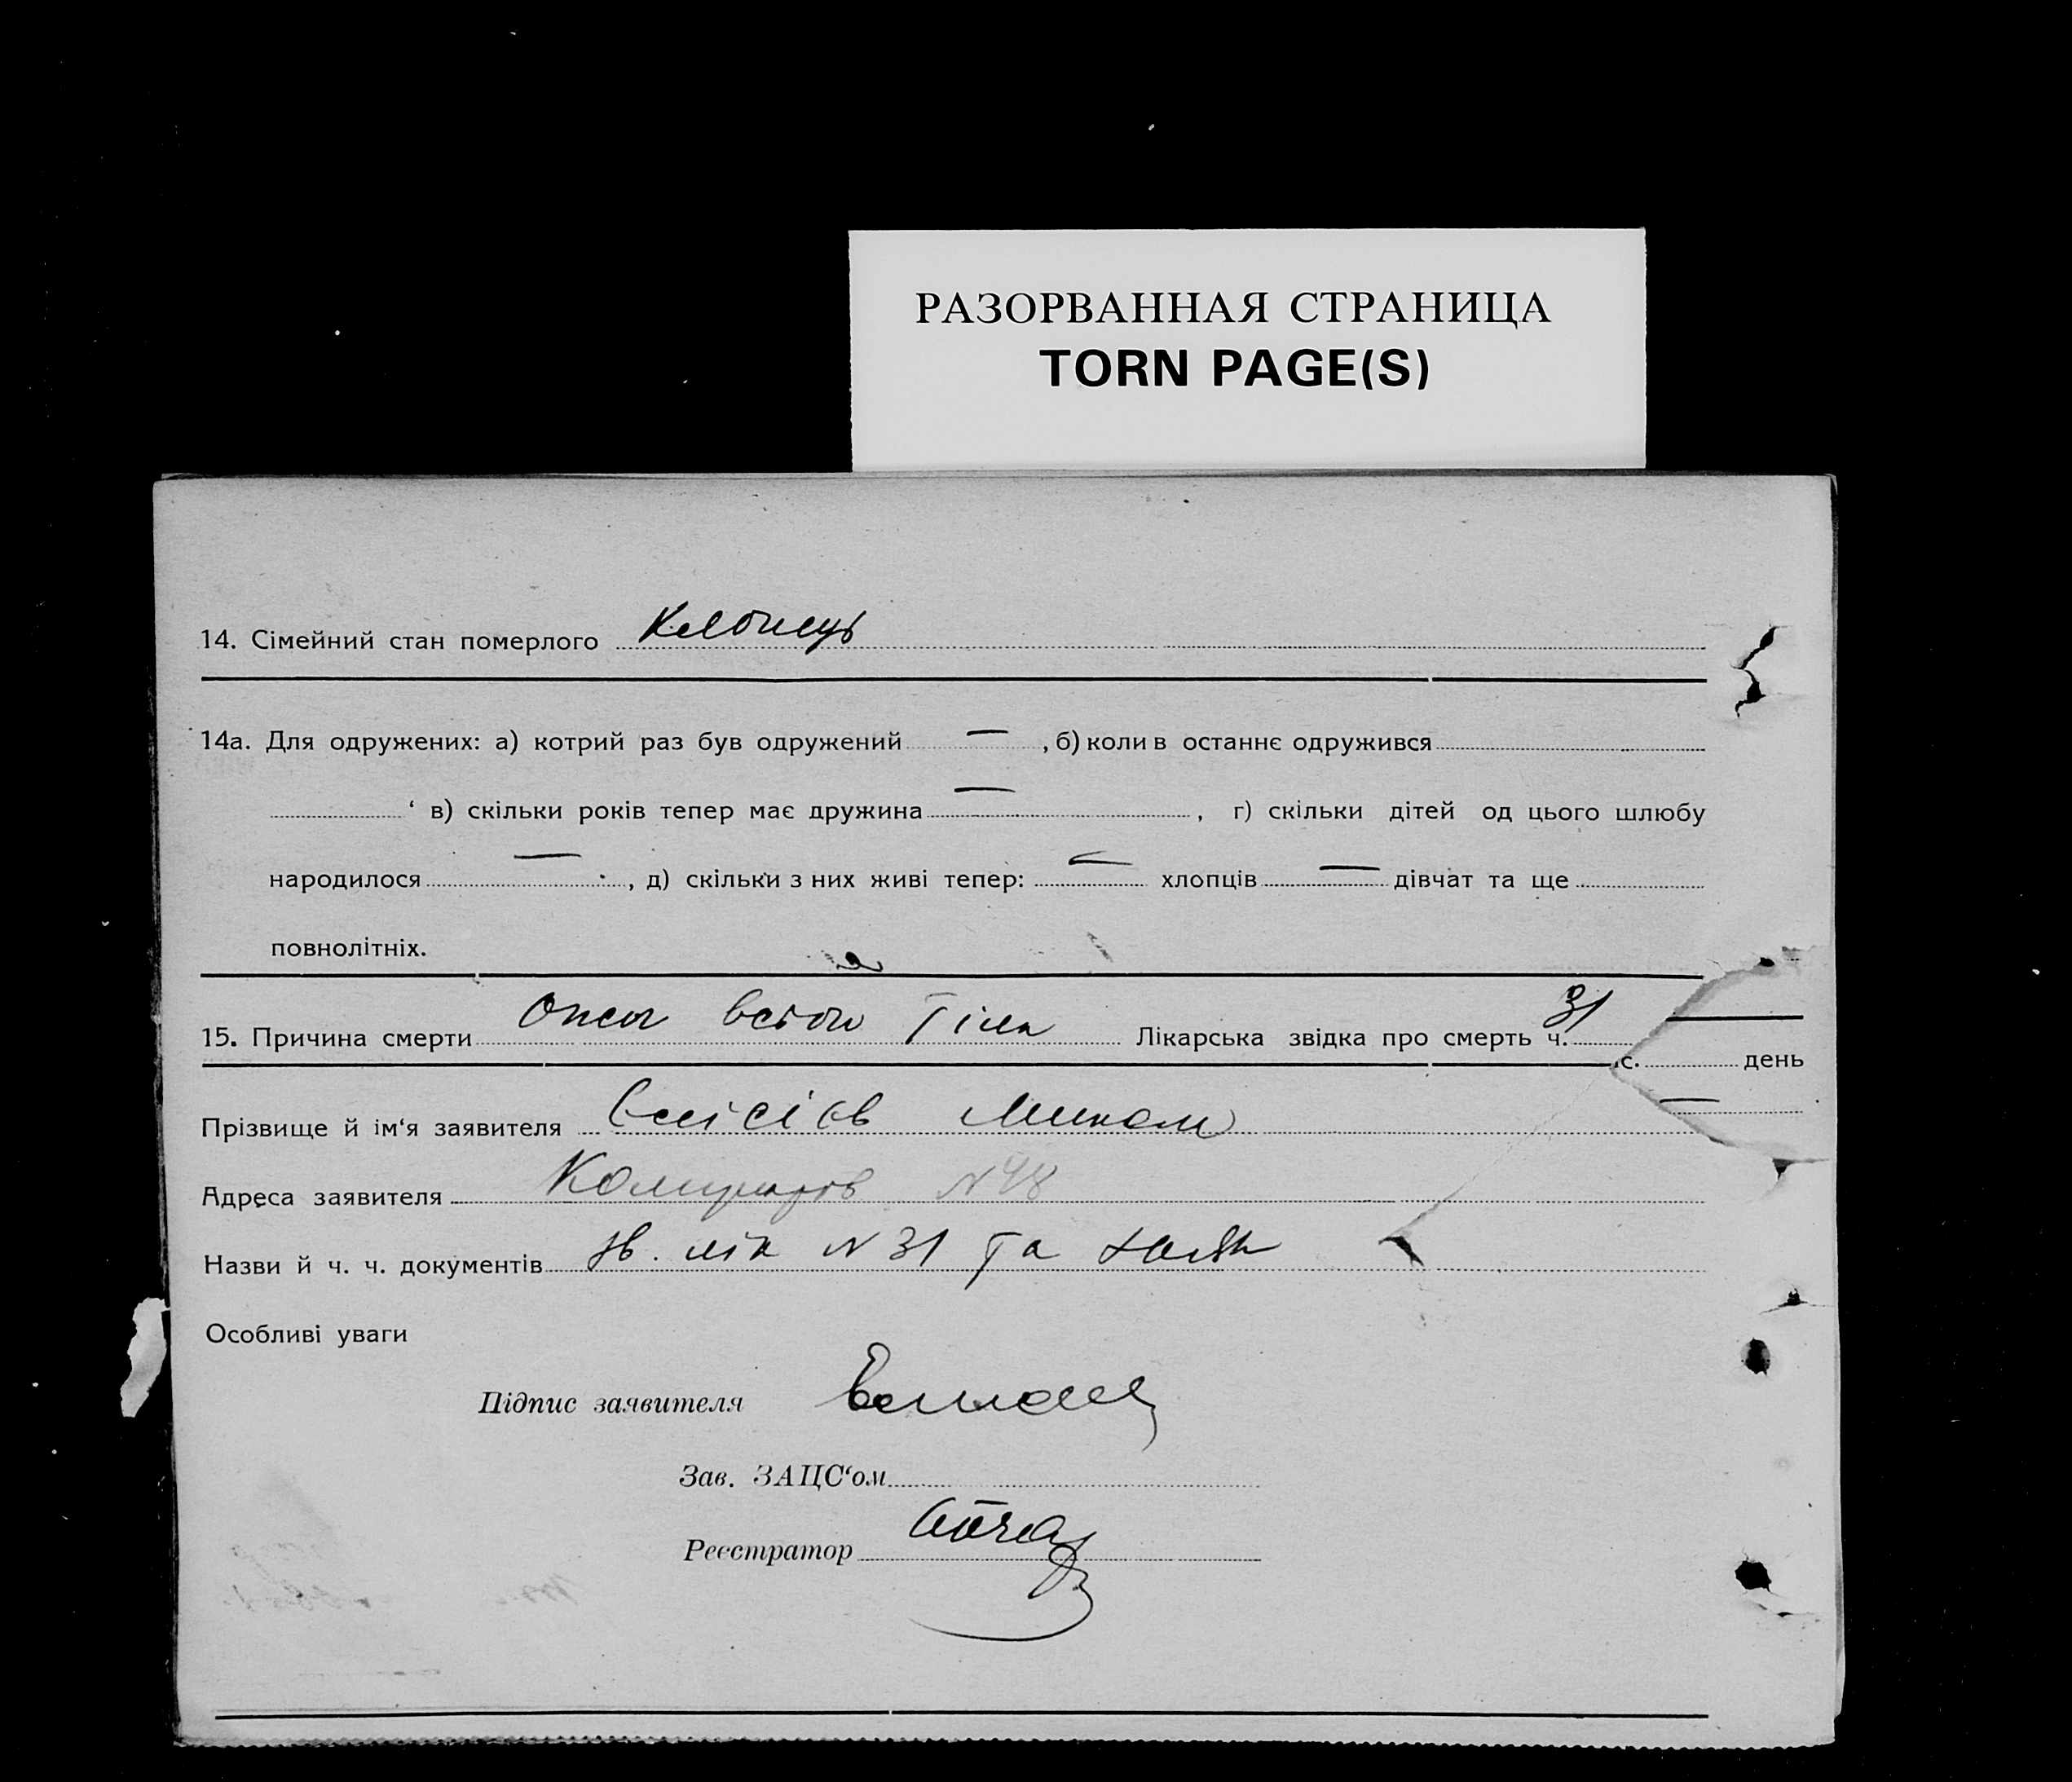 РАЗОРВАННАЯ СТРАНИЦА
TORN PAGE(S)
14. Сімейний стан померлого хлопець
14а. Для одружених: а) котрий раз був одружений — , б) коли в останнє одружився
‘ в) скільки років тепер має дружина — , г) скільки дітей од цього шлюбу
народилося — , д) скільки з них живі тепер: — хлопців — дівчат та ще
повнолітніх.
15. Причина смерти Опіки всього тіла Лікарська звідка про смерть ч. 31
с. день
Прізвище й ім‘я заявителя
Адреса заявителя №48
Назви й ч. ч. документів зв. лік №31 та
Особливі уваги
Підпис заявителя
Зав. ЗАЦС‘ом
Реєстратор